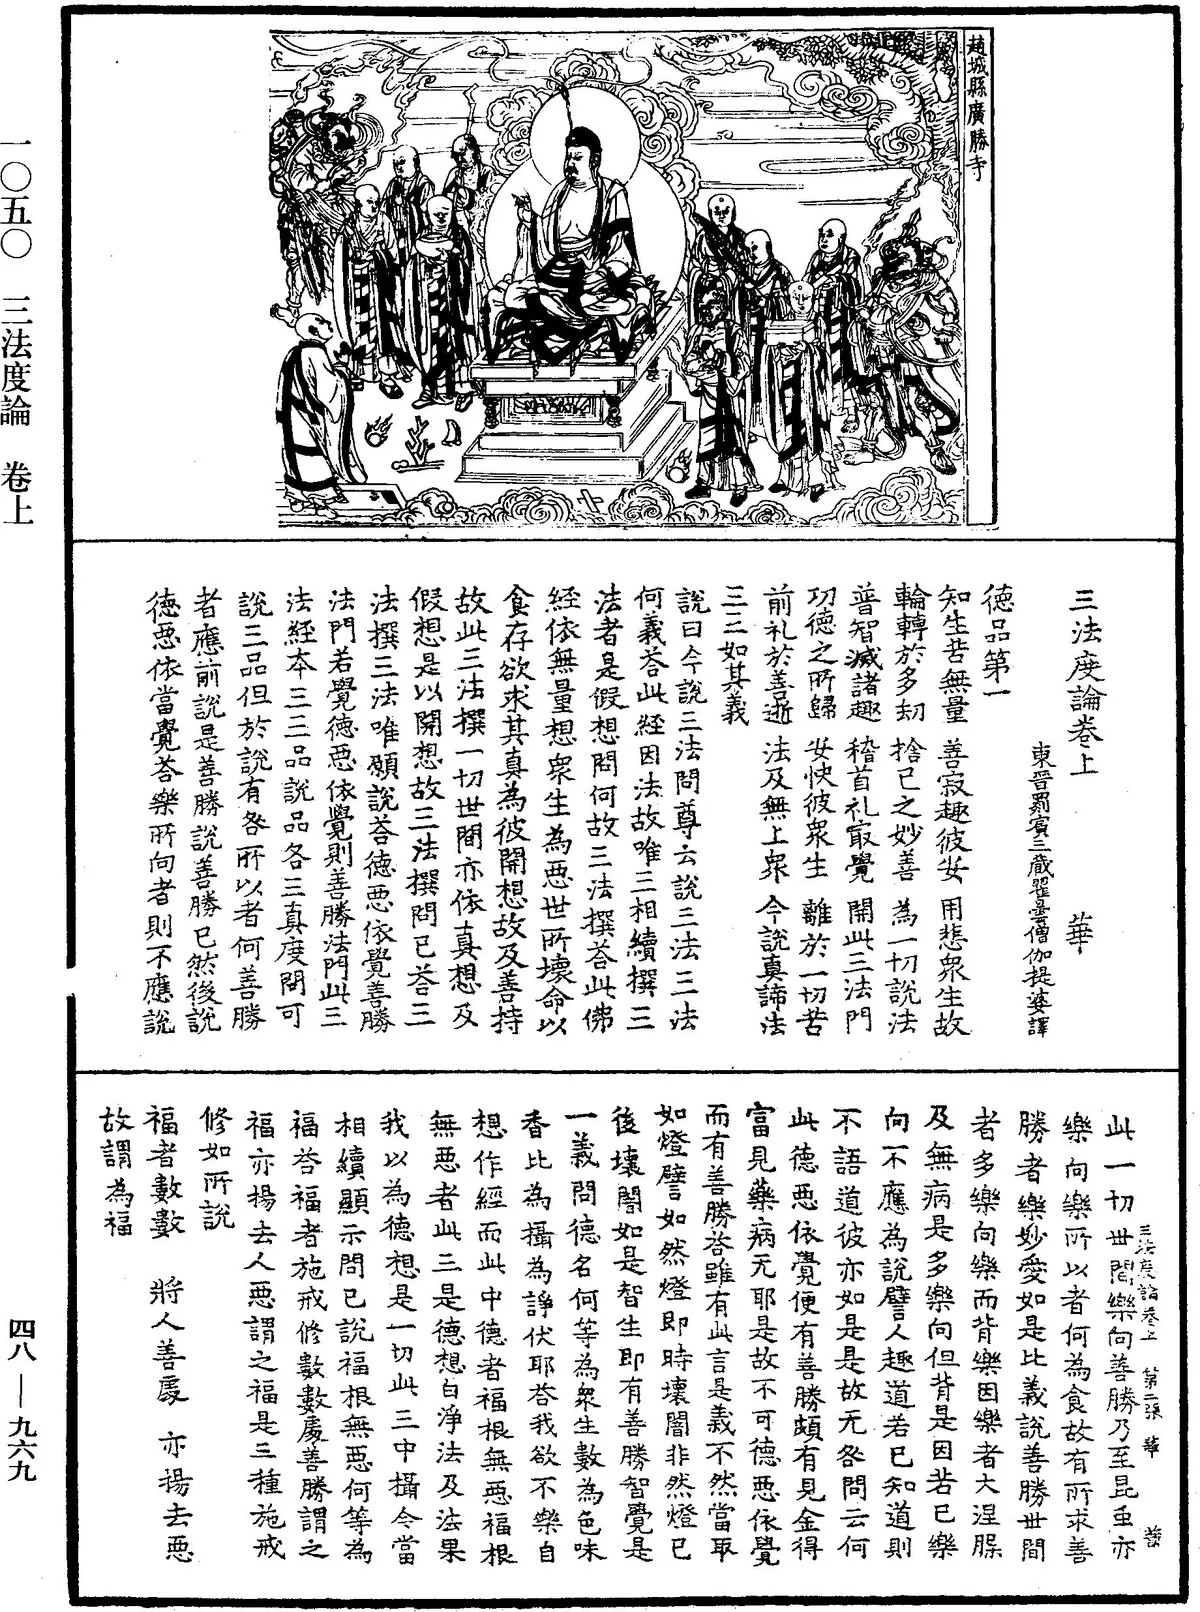 趙城縣廣勝寺
一〇五〇　三法度論　卷上
三法度論卷上　華
東晉罽賓三藏瞿曇僧伽提婆譯
德品第一
知生苦無量　善寂趣彼安　用悲衆生故
輪轉於多劫　捨己之妙善　為一切說法
普智滅諸趣　稽首礼最覺　開此三法門
功德之所歸　安快彼衆生　離於一切苦
前礼於善逝　法及無上衆　今說真諦法
三三如其義
說曰今說三法問尊云說三法三法
何義荅此經因法故唯三相續撰三
法者是假想問何故三法撰荅此佛
經依無量想衆生為惡世所壞命以
食存欲求其真為彼開想故及善持
故此三法撰一切世間亦依真想及
假想是以開想故三法撰問已荅三
法撰三法唯願說荅德惡依覺善勝
法門若覺德惡依覺則善勝法門此三
法經本三三品說品各三真度問可
說三品但於說有咎所以者何善勝
者應前說是善勝說善勝已然後說
德惡依當覺荅樂所向者則不應說
三法度論卷上　第二張　華
此一切世間樂向善勝乃至昆虫亦
樂向樂所以者何為食故有所求善
勝者樂妙愛如是比義說善勝世間
者多樂向樂而背樂因樂者大涅槃
及無病是多樂向但背是因若已樂
向一不應為說譬人趣道若已知道則
不語道彼亦如是是故无咎問云何
此德惡依覺便有善勝頗有見金得
富見藥病无耶是故不可德惡依覺
而有善勝荅雖有此言是義不然當取
如燈譬如然燈即時壞闇非然燈已
後壞闇如是智生即有善勝智覺是
一義問德名何等為衆生數為色味
香比為攝為諍伏耶荅我欲不樂自
想作經而此中德者福根無惡福根
無惡者此三是德想白淨法及法果
我以為德想是一切此三中攝今當
相續顯示問已說福根無惡何等為
福荅福者施戒修數數處善勝謂之
福亦揚去人惡謂之福是三種施戒
修如所說
福者數數　將人善處　亦揚去惡
故謂為福
四八—九六九